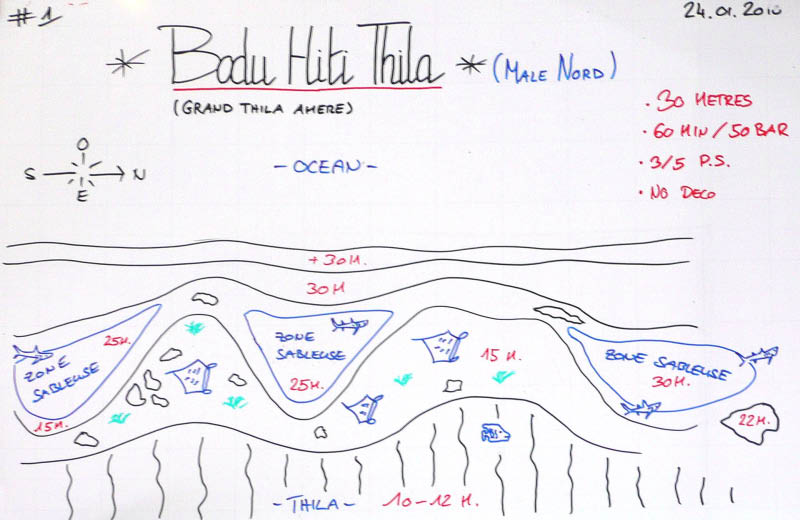 #1
24.01.2010
* Bodu Hiti Thila * (MALE NORD)
(GRAND THILA AMERE)
• 30 METRES
• 60 MIN / 50 BAR
• 3/5 P.S.
• NO DECO
O
S N
E
- OCEAN -
+ 30 M.
30 M
25 M.
ZONE
SABLEUSE
15 M.
ZONE
SABLEUSE
25 M.
15 M.
ZONE SABLEUSE
30 M.
22 M.
- THILA - 10-12 M.